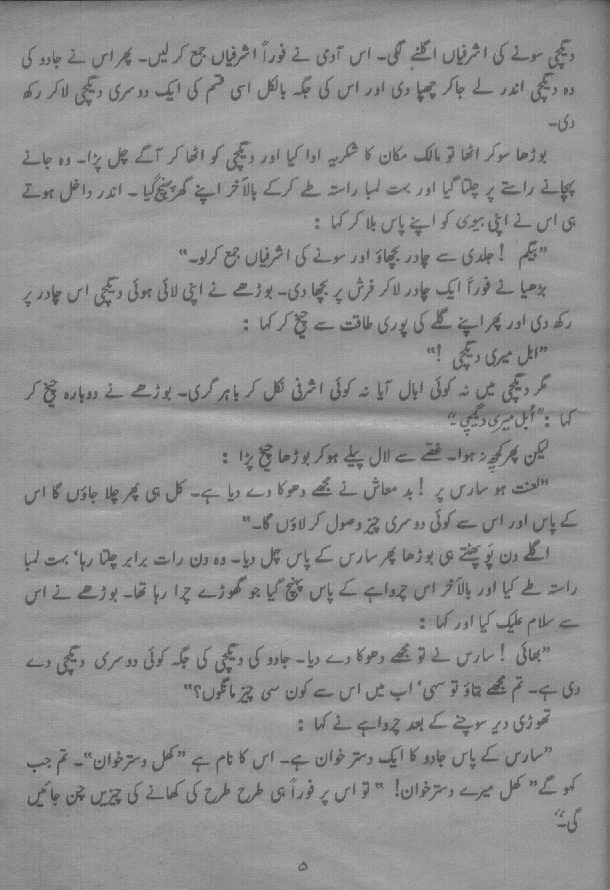 دیگچی سونے کی اشرفیاں اگلنے لگی۔ اس آدمی نے فوراً اشرفیاں جمع کر لیں۔ پھر اس نے جادو کی
وہ دیگچی اندر لے جا کر چھپا دی اور اس کی جگہ بالکل اسی قسم کی ایک دوسری دیگچی لا کر رکھ
دی۔
بوڑھا سو کر اٹھا تو مالک مکان کا شکریہ ادا کیا اور دیگچی کو اٹھا کر آگے چل پڑا۔ وہ جانے
پہچانے راستے پر چلتا گیا اور بہت لمبا راستہ طے کر کے بالآخر اپنے گھر پہنچ گیا ۔ اندر داخل ہوتے
ہی اس نے اپنی بیوی کو اپنے پاس بلا کر کہا :
”بیگم ! جلدی سے چادر بچھاؤ اور سونے کی اشرفیاں جمع کر لو۔“
بڑھیا نے فوراً ایک چادر لا کر فرش پر بچھا دی۔ بوڑھے نے اپنی لائی ہوئی دیگچی اس چادر پر
رکھ دی اور پھر اپنے گلے کی پوری طاقت سے چیخ کر کہا :
”ابل میری دیگچی !“
مگر دیگچی میں نہ کوئی ابال آیا نہ کوئی اشرفی نکل کر باہر گری۔ بوڑھے نے دوبارہ چیخ کر
کہا : ”اُبل میری دیگچی۔“
لیکن پھر کچھ نہ ہوا۔ غصّے سے لال پیلے ہو کر بوڑھا چیخ پڑا :
”لعنت ہو سارس پر ! بد معاش نے مجھے دھوکا دے دیا ہے۔ کل ہی پھر چلا جاؤں گا اس
کے پاس اور اس سے کوئی دوسری چیز وصول کر لاؤں گا۔“
اگلے دن پَو پھٹتے ہی بوڑھا پھر سارس کے پاس چل دیا۔ وہ دن رات برابر چلتا رہا‘ بہت لمبا
راستہ طے کیا اور بالآخر اس چرواہے کے پاس پہنچ گیا جو گھوڑے چرا رہا تھا۔ بوڑھے نے اس
سے سلام علیک کیا اور کہا :
”بھائی ! سارس نے تو مجھے دھوکا دے دیا۔ جادو کی دیگچی کی جگہ کوئی دوسری دیگچی دے
دی ہے۔ تم مجھے بتاؤ تو سہی‘ اب میں اس سے کون سی چیز مانگوں؟“
تھوڑی دیر سوچنے کے بعد چرواہے نے کہا :
”سارس کے پاس جادو کا ایک دستر خوان ہے۔ اس کا نام ہے ”کھل دسترخوان“۔ تم جب
کہو گے ”کھل میرے دسترخوان! “ تو اس پر فوراً ہی طرح طرح کی کھانے کی چیزیں چن جائیں
گی۔“
۵